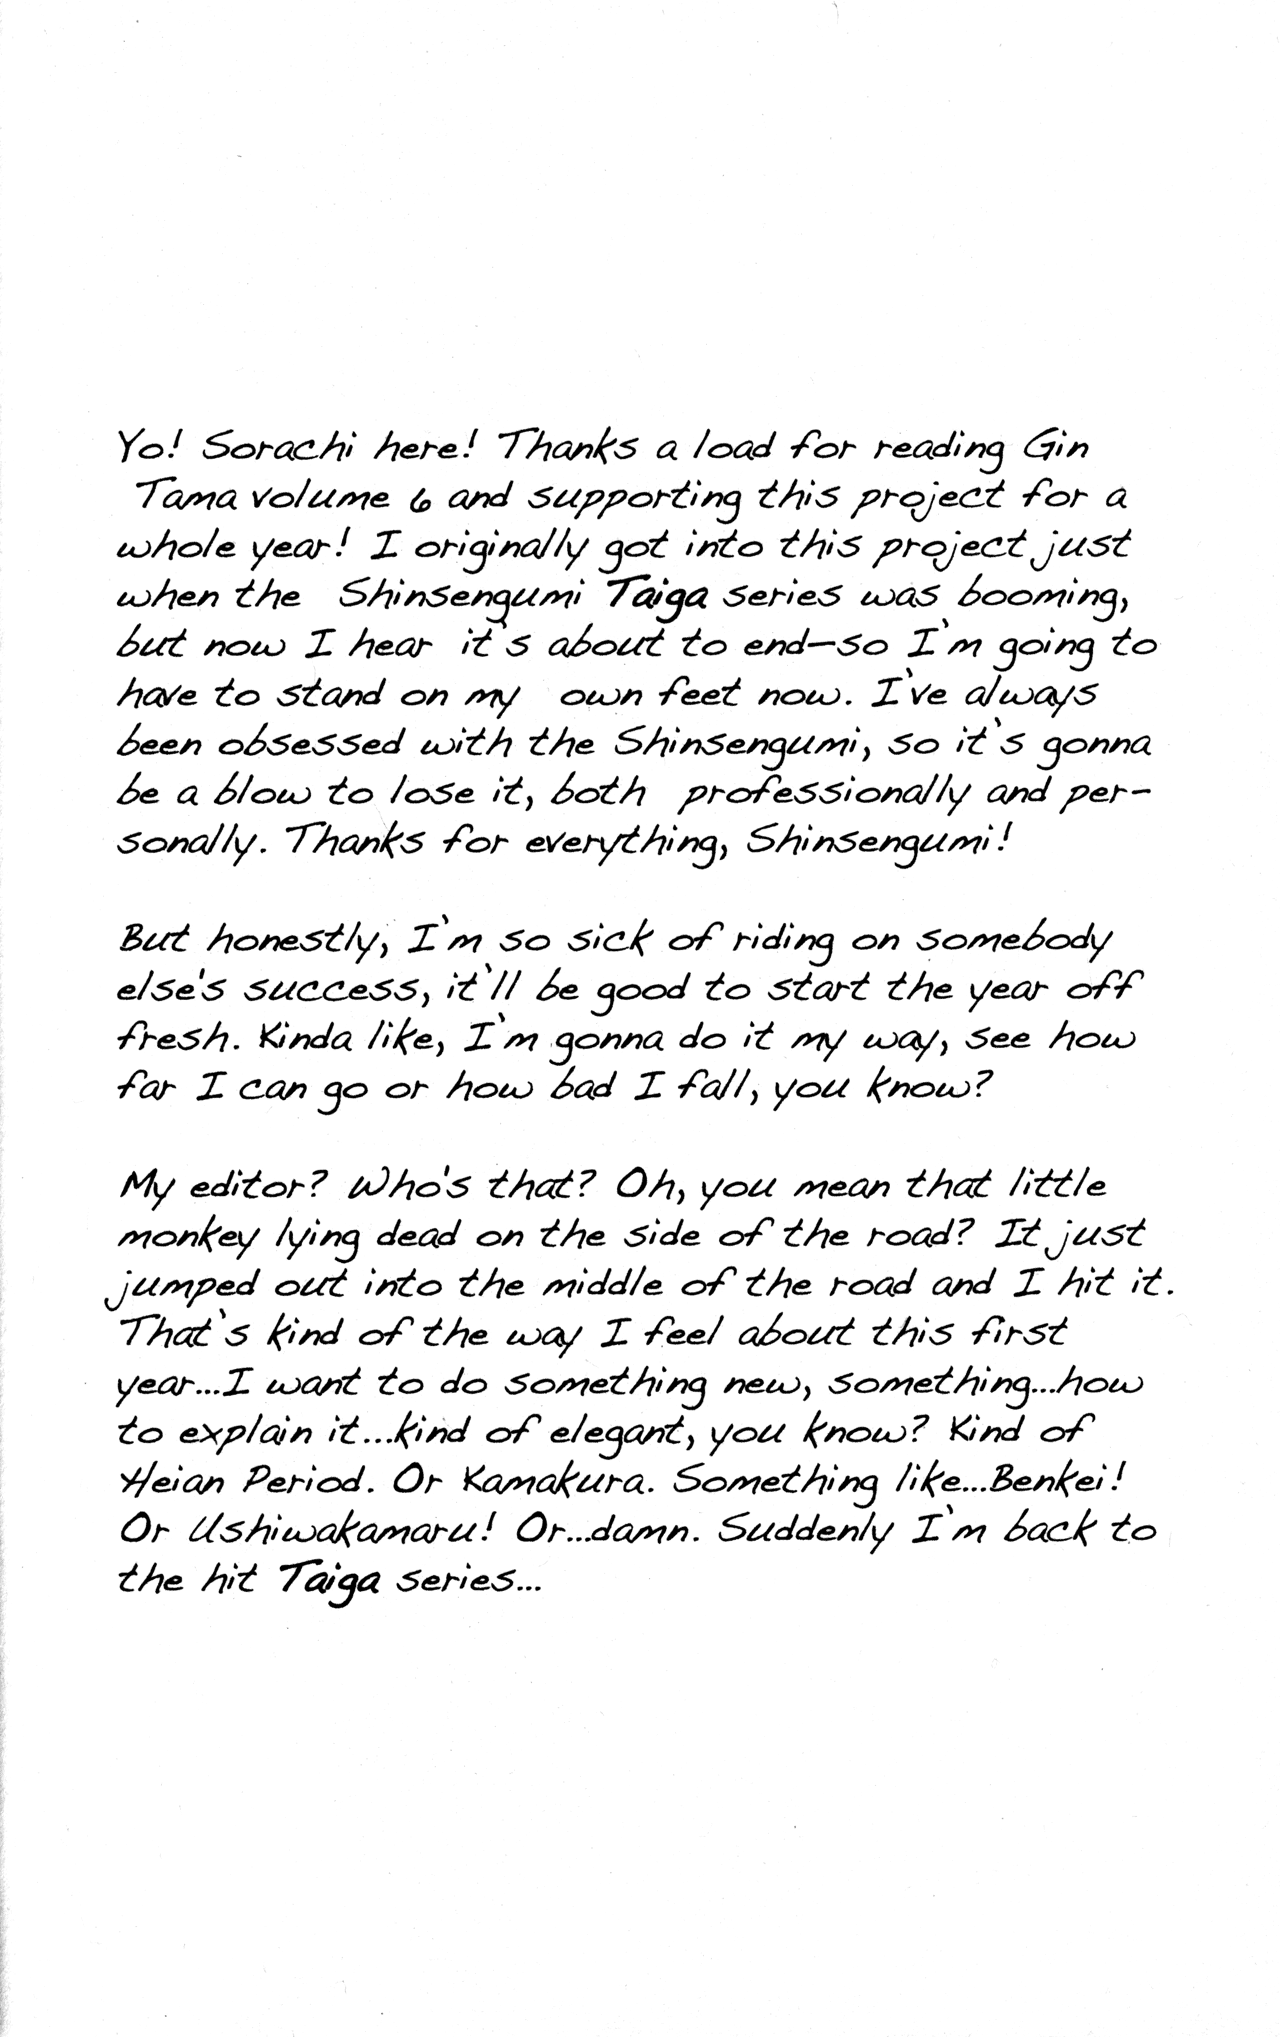 Yo! Sorachi here! Thanks a load for reading Gin
Tama volume 6 and supporting this project for a
whole year! I originally got into this project just
when the Shinsengumi Taiga series was booming,
but now I hear it's about to end—so I'm going to
have to stand on my own feet now. I've always
been obsessed with the Shinsengumi, so it's gonna
be a blow to lose it, both professionally and per-
sonally. Thanks for everything, Shinsengumi!
But honestly, I'm so sick of riding on somebody
else's success, it'll be good to start the year off
fresh. Kinda like, I'm gonna do it my way, see how
far I can go or how bad I fall, you know?
My editor? Who's that? Oh, you mean that little
monkey lying dead on the side of the road? It just
jumped out into the middle of the road and I hit it.
That's kind of the way I feel about this first
year...I want to do something new, something...how
to explain it...kind of elegant, you know? Kind of
Heian Period. Or Kamakura. Something like...Benkei!
Or Ushiwakamaru! Or...damn. Suddenly I'm back to
the hit Taiga series...